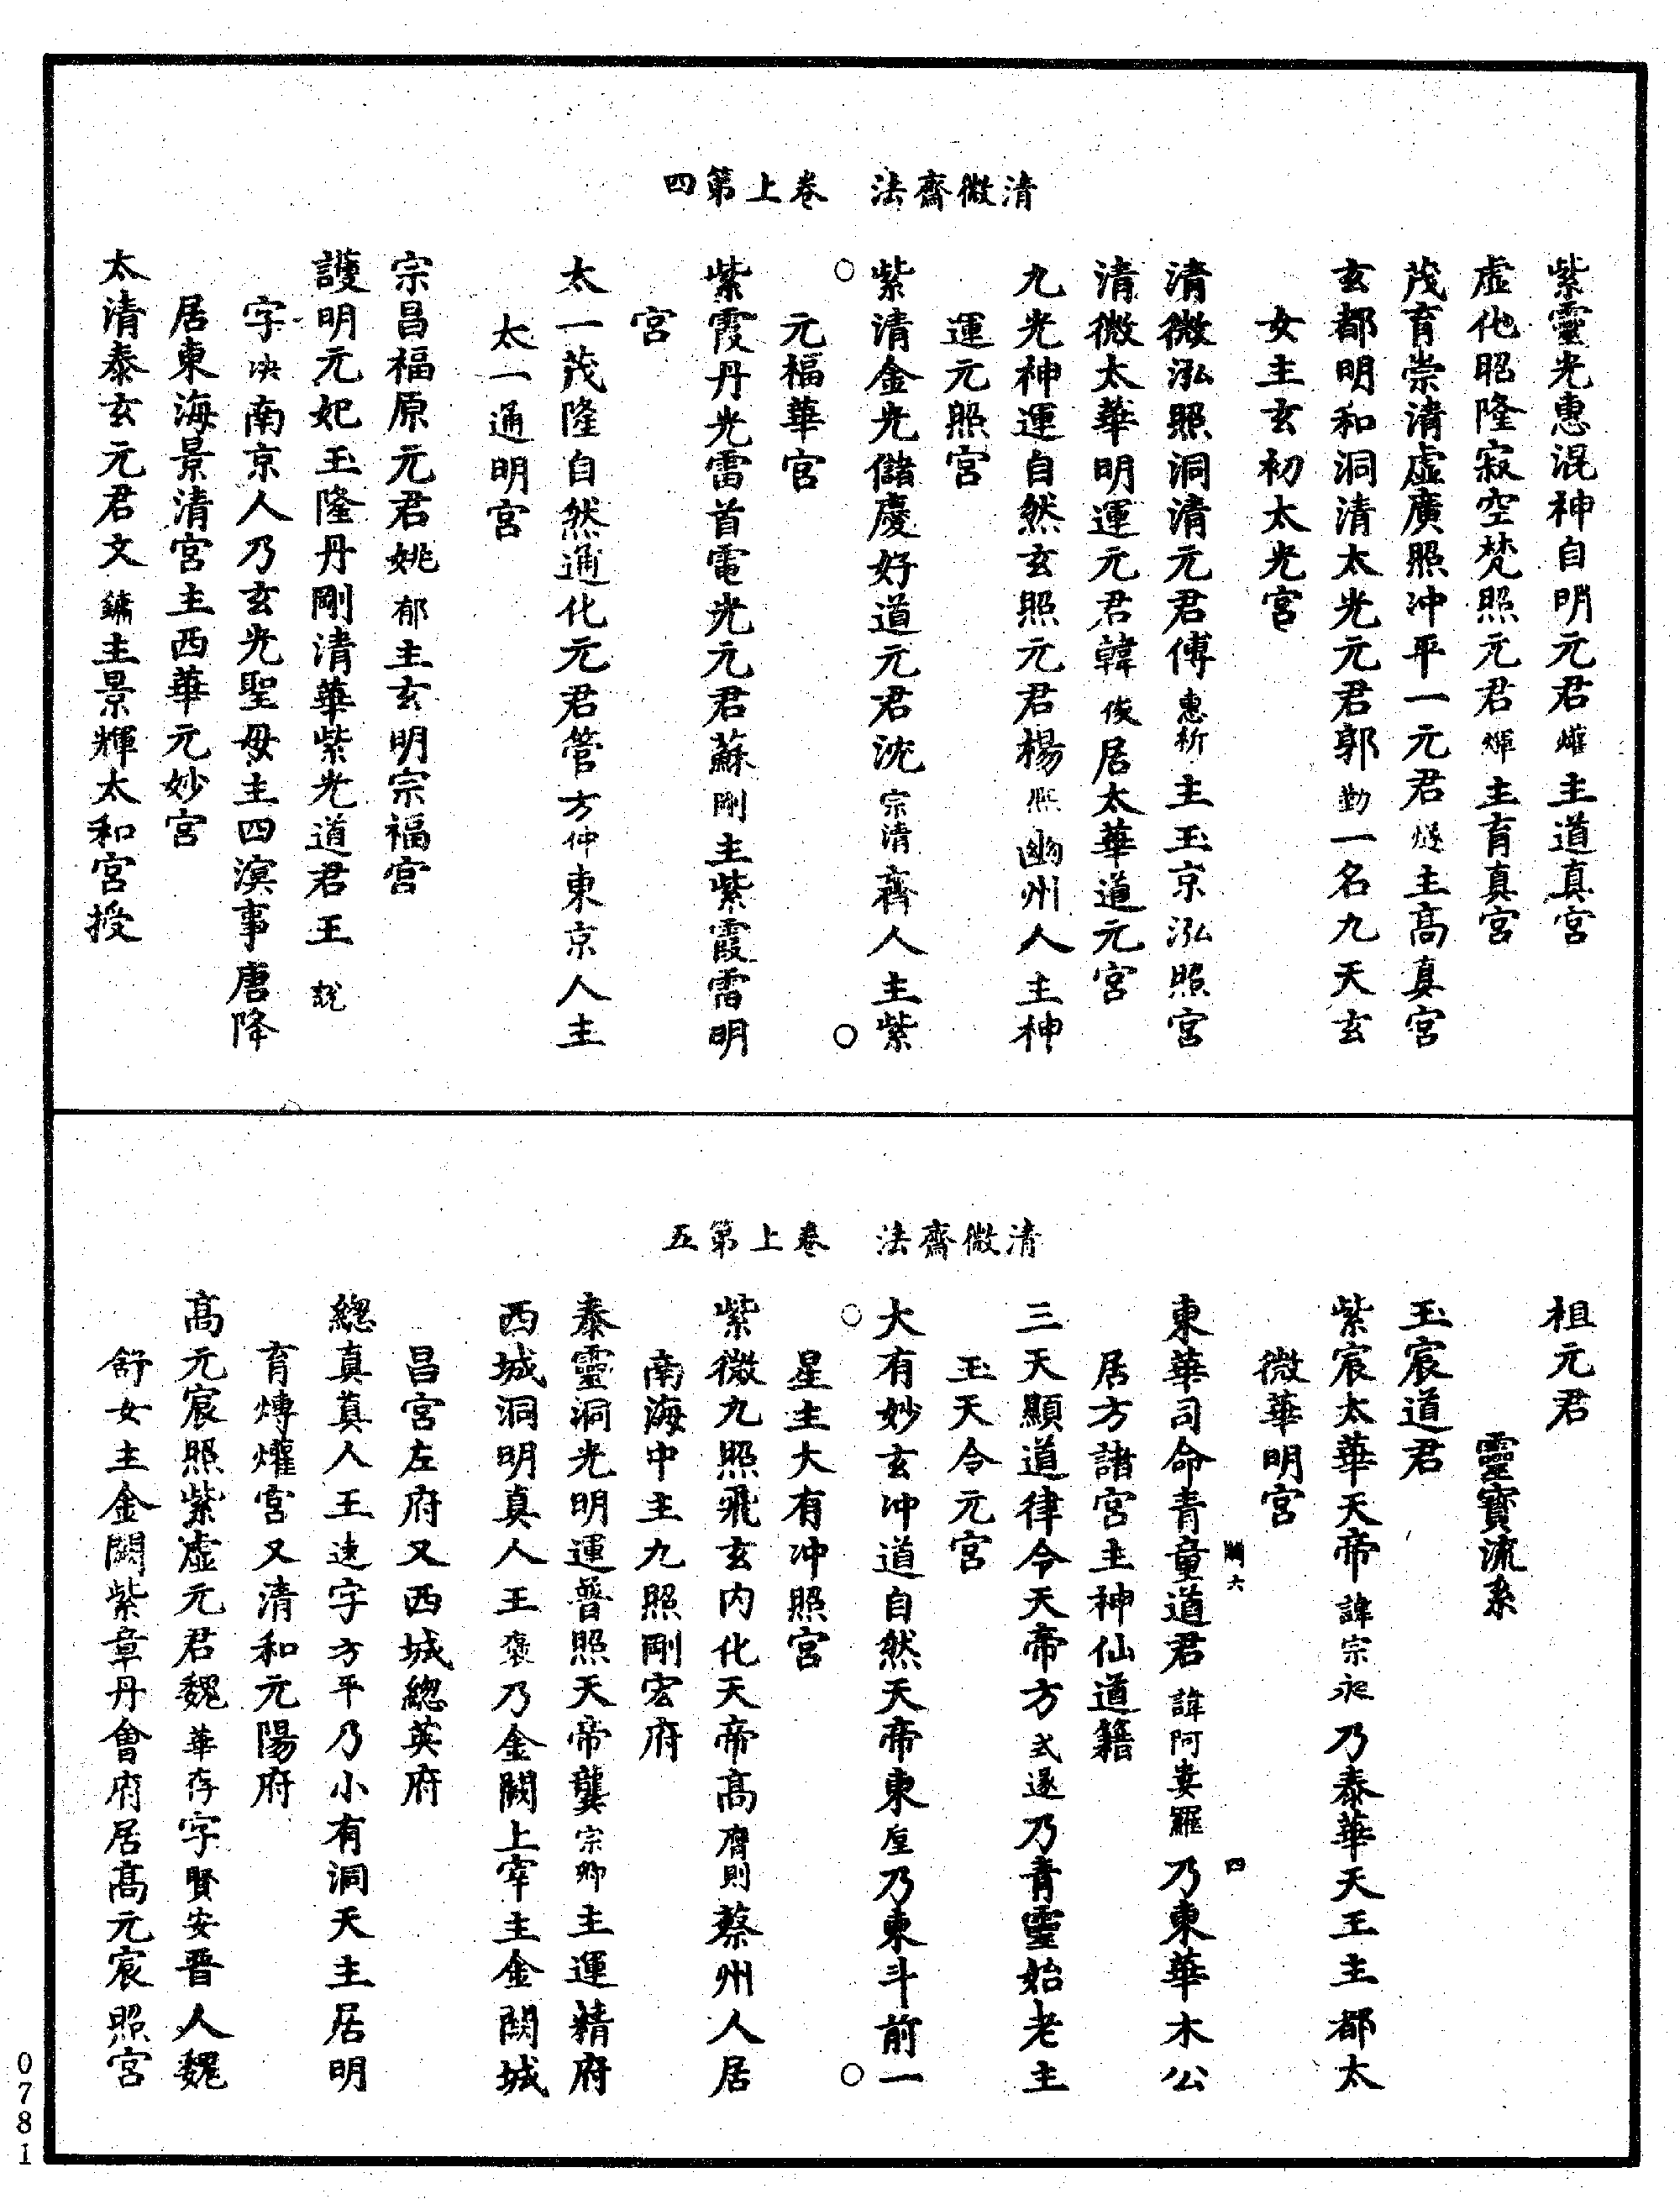 清微齋法　卷上第四
紫靈光惠混神自明元君㸌主道真宮
虛化昭隆寂空梵照元君煇主育真宮
茂育崇清虛廣照冲平一元君燧主高真宮
玄都明和洞清太光元君郭勤一名九天玄
女主玄初太光宮
清微泓照洞清元君傅惠祈主玉京泓照宮
清微太華明運元君韓俊居太華道元宮
九光神運自然玄照元君楊熙幽州人主神
運元照宮
紫清金光儲慶好道元君沈宗清齊人主紫
元福華宮
○　○
紫霞丹光雷首電光元君蘇剛主紫霞雷明
宮
太一茂隆自然通化元君管方仲東京人主
太一通明宮
宗昌福原元君姚郁主玄明宗福宮
護明元妃玉隆丹剛清華紫光道君王說
字決南京人乃玄光聖母主四溟事唐降
居東海景清宮主西華元妙宮
太清泰玄元君文鏽主景輝太和宮授
清微齋法　卷上第五
祖元君
靈寶流系
玉宸道君
紫宸太華天帝諱宗昶乃泰華天王主都太
微華明宮
關六　四
東華司命青童道君諱阿婁羅乃東華木公
居方諸宮主神仙道籍
三天顯道律令天帝方式遂乃青靈始老主
玉天令元宮
大有妙玄冲道自然天帝東垕乃東斗前一
星主大有冲照宮
○　○
紫微九照飛玄內化天帝高膺則蔡州人居
南海中主九照剛宏府
泰靈洞光明運普照天帝龔宗卿主運精府
西城洞明真人王褒乃金闕上宰主金闕城
昌宮左府又西城總英府
總真真人王遠字方平乃小有洞天主居明
育煿爟宮又清和元陽府
高元宸照紫虛元君魏華存字賢安晉人魏
舒女主金闕紫章丹會府居高元宸照宮
0781